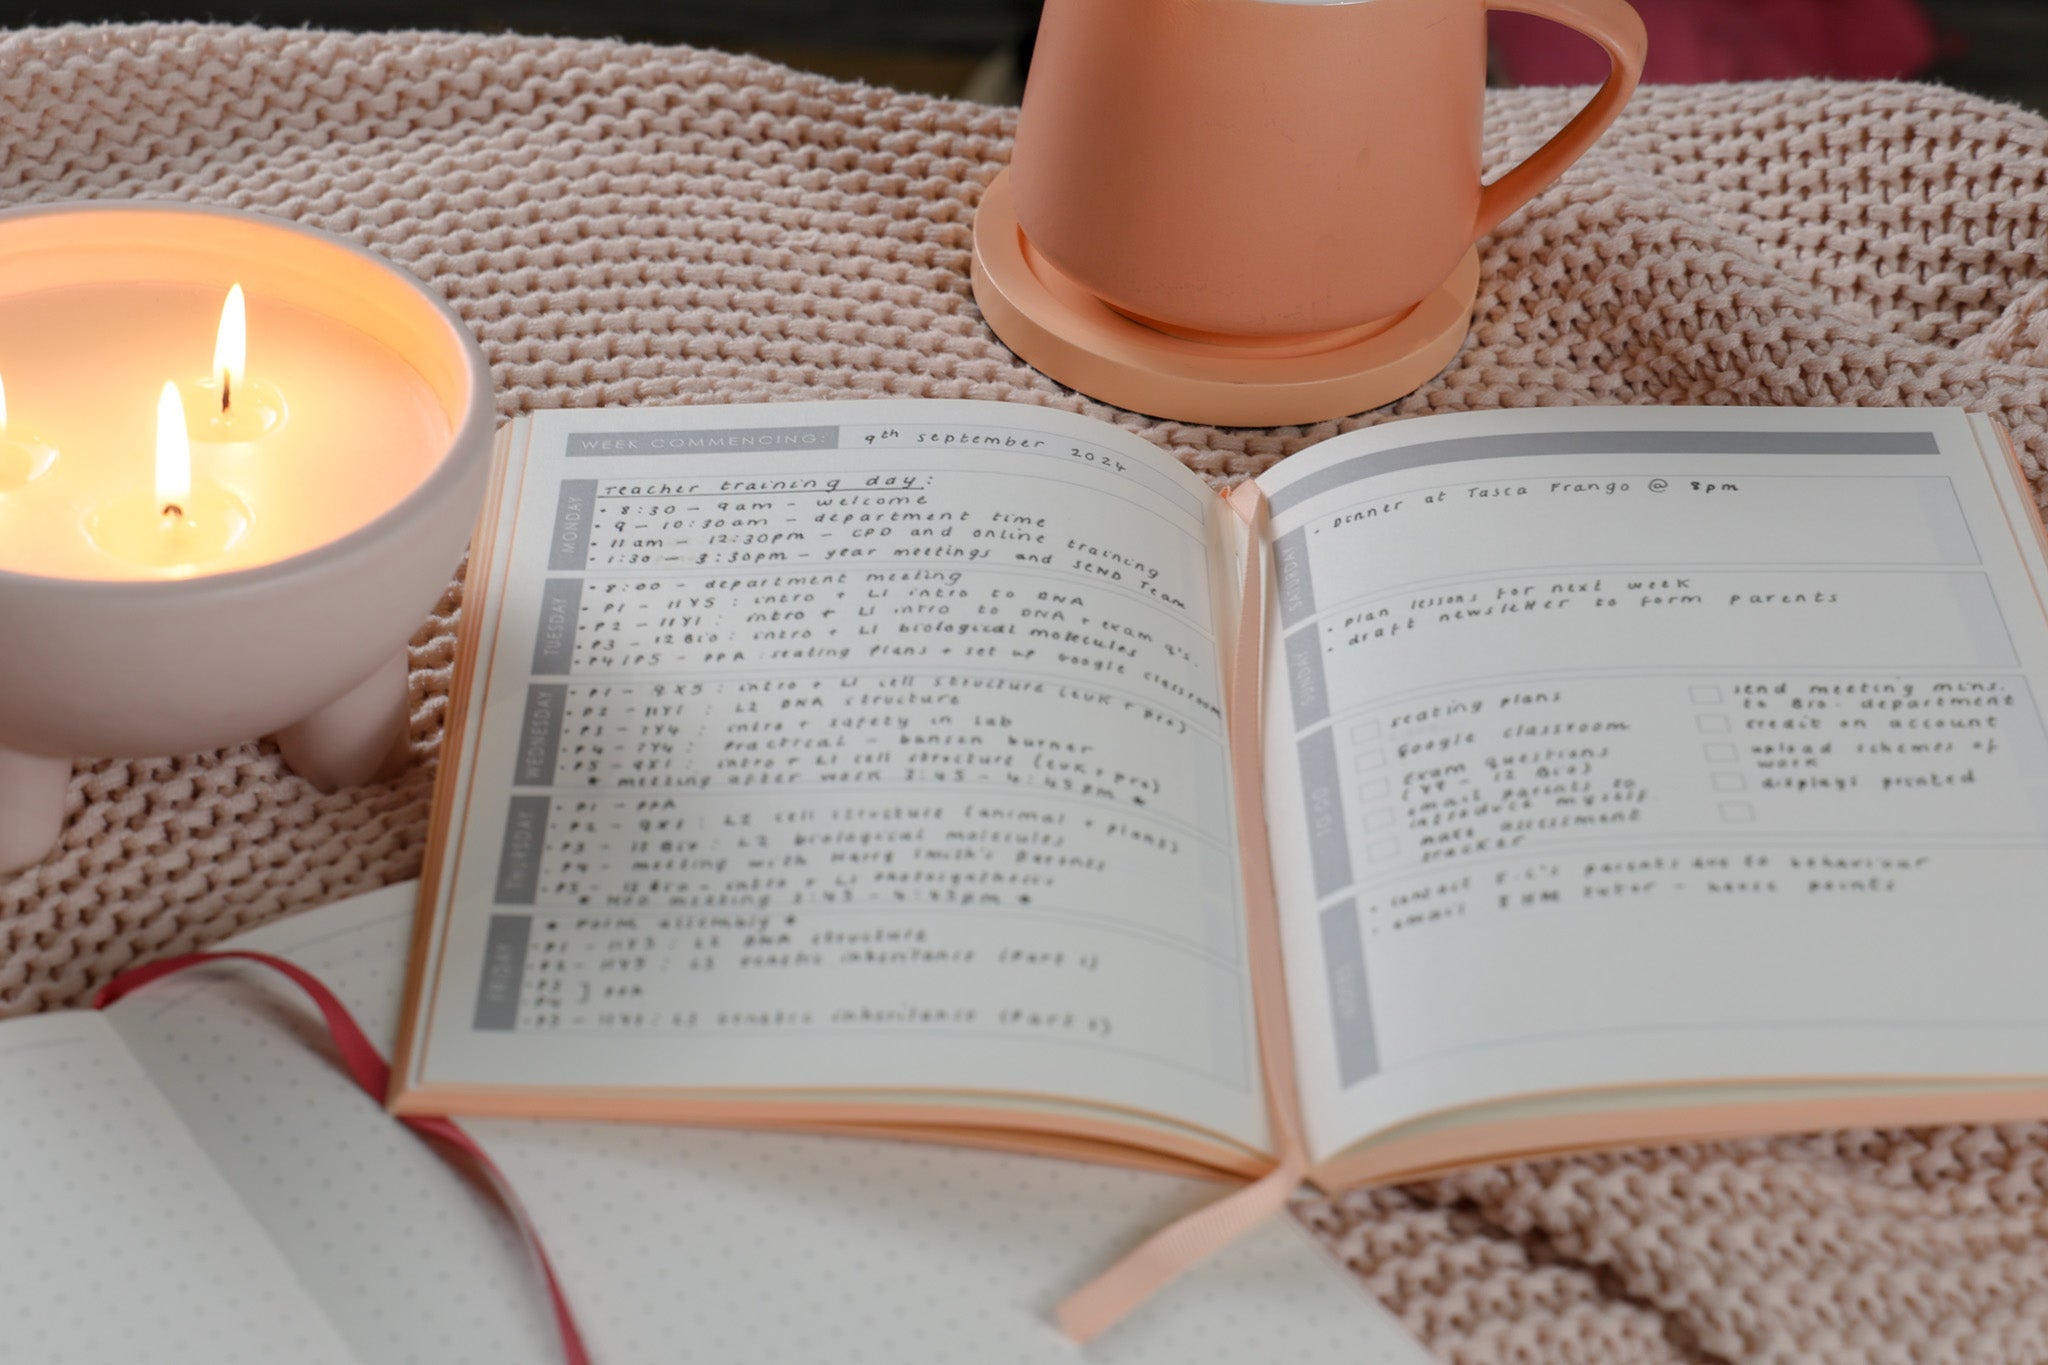 WEEK COMMENCING: 9th september 2024
MONDAY
Teacher training day:
• 8:30 - 9am - welcome
• 9 - 10:30am - department time
• 11am - 12:30pm - CPD and online training
• 1:30 - 3:30pm - year meetings and SEND Team
TUESDAY
• 8:00 - department meeting
• P1 - 11Y5 : intro + L1 intro to DNA
• P2 - 11Y1 : intro + L1 intro to DNA + exam q's.
• P3 - 12Bio : intro + L1 biological molecules
• P4/P5 - PPA : seating plans + set up Google classroom
WEDNESDAY
• P1 - 9X5 : intro + L1 cell structure (euk + pro)
• P2 - 11Y1 : L2 DNA structure
• P3 - 7Y4 : intro + safety in lab
• P4 - 7Y4 : Practical - bunsen burner
• P5 - 9X1 : intro + L1 cell structure (euk + pro)
* meeting after work 2:45 - 4:45pm *
THURSDAY
• P1 - PPA
• P2 - 9X1 : L2 cell structure (animal + plant)
• P3 - 12Bio : L2 biological molecules
• P4 - meeting with Harry Smith's Parents
• P5 - 12Bio - intro + L1 Photosynthesis
meeting 2:45 - 4:45pm *
FRIDAY
* Form assembly *
• P1 - 11Y3 : L2 DNA structure
• P2 - 11Y3 : L3 Genetic inheritance (Part 1)
• P3
• P4 } PPA
L3 Genetic inheritance (Part 1)
SATURDAY
• Dinner at Tasca Frango @ 8pm
SUNDAY
• plan lessons for next week
• draft newsletter to form parents
TO DO
seating plans
Google classroom
exam questions
(Y9 - 12 Bio)
email parents to
introduce myself.
make assessment
tracker
send meeting mins.
to Bio. department
credit on account
upload schemes of
work
displays printed
NOTES
• contact parents due to behaviour
• email tutor - house points